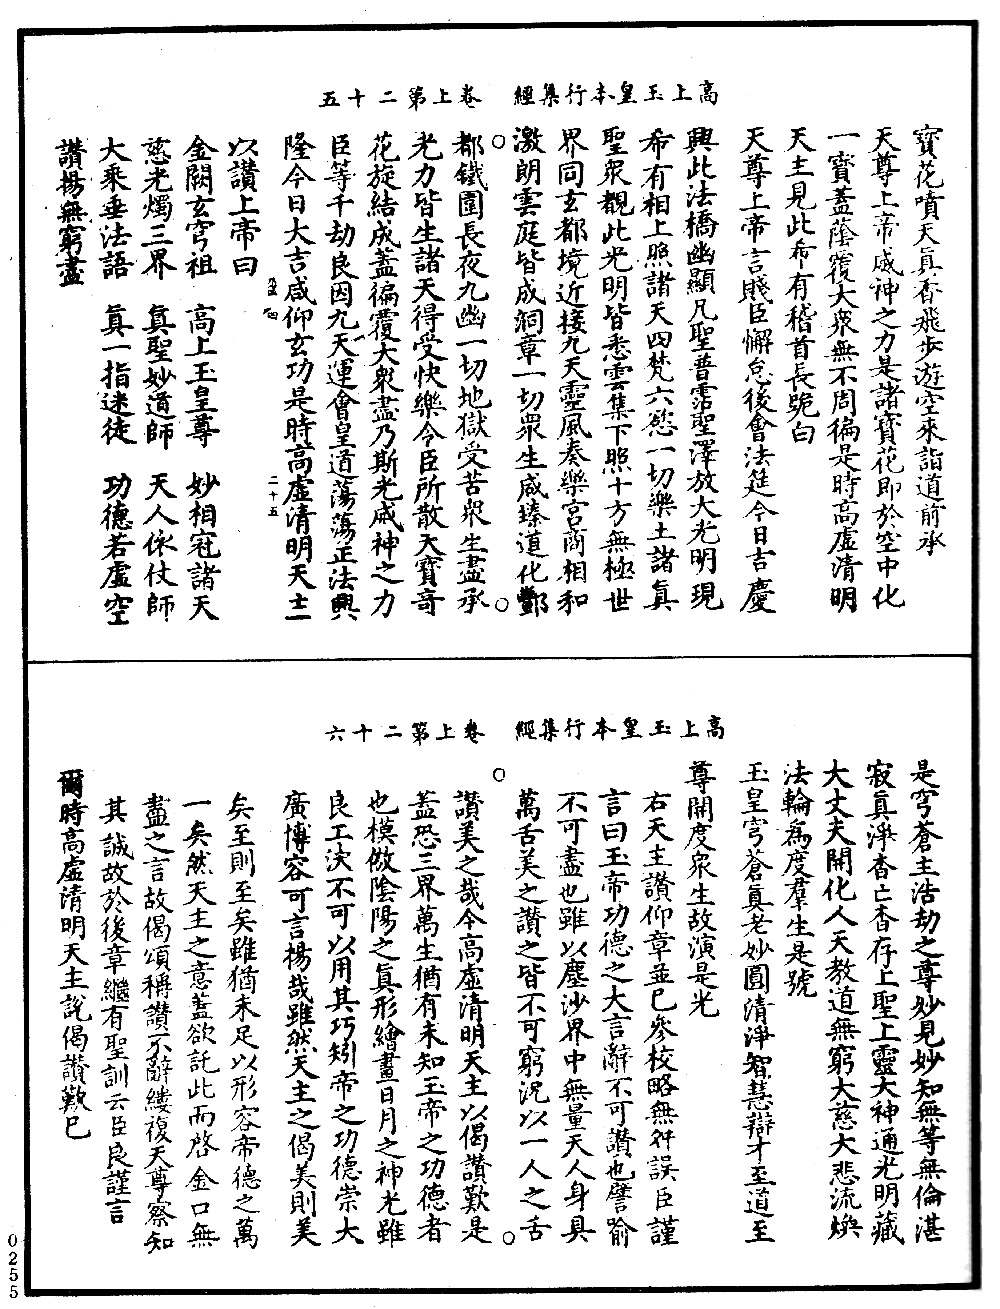 高上玉皇本行集經　卷上第二十五
寶花噴天真香飛步遊空來詣道前承
天尊上帝威神之力是諸寶花即於空中化
一寶蓋蔭覆大衆無不周徧是時高虛清明
天主見此希有稽首長跪白
天尊上帝言賤臣懈怠後會法筵今日吉慶
興此法橋幽顯凡聖普霑聖澤放大光明現
希有相上照諸天四梵六慾一切樂土諸真
聖衆覩此光明皆悉雲集下照十方無極世
界同玄都境近接九天靈風奏樂宮商相和
激朗雲庭皆成洞章一切衆生咸臻道化酆
都鐵圍長夜九幽一切地獄受苦衆生盡承
光力皆生諸天得受快樂今臣所散天寶奇
花旋結成蓋徧覆大衆盡乃斯光威神之力
臣等千劫良因九天運會皇道蕩蕩正法興
隆今日大吉咸仰玄功是時高虛清明天主
二十五
以讚上帝曰
金闕玄穹祖　高上玉皇尊　妙相冠諸天
慈光燭三界　真聖妙道師　天人依仗師
大乘垂法語　真一指迷徒　功德若虛空
讚揚無窮盡
高上玉皇本行集經　卷上第二十六
是穹蒼主浩劫之尊妙見妙知無等無倫湛
寂真淨杳亡杳存上聖上靈大神通光明藏
大丈夫開化人天教道無窮大慈大悲流煥
法輪為度羣生是號
玉皇穹蒼真老妙圓清淨智慧辯才至道至
尊開度衆生故演是光
右天主讚仰章並已參校略無舛誤臣謹
言曰玉帝功德之大言辭不可讚也譬喻
不可盡也雖以塵沙界中無量天人身具
萬舌美之讚之皆不可窮況以一人之舌
讚美之哉今高虛清明天主以偈讚歎是
蓋恐三界萬生猶有未知玉帝之功德者
也模倣陰陽之真形繪畫日月之神光雖
良工決不可以用其巧矧帝之功德崇大
廣博容可言揚哉雖然天主之偈美則美
矣至則至矣雖猶未足以形容帝德之萬
一矣然天主之意蓋欲託此而啓金口無
盡之言故偈頌稱讚不辭縷複天尊察知
其誠故於後章繼有聖訓云臣良謹言
爾時高虛清明天主說偈讚歎已
0255